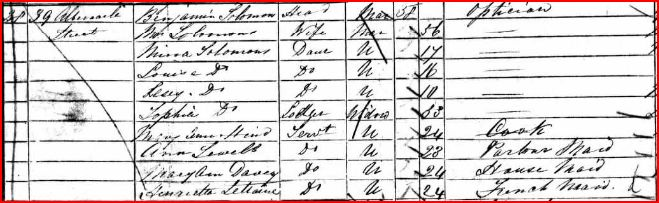 29 Albemarle Benjamin Solomon Head Mar 58 Optician
Street Mrs Solomons Wife Mar 56
Minna Solomons Daur U 17
Louisa Do Do U 16
Do Do U 10
Sophia Do Lodger Widow 83
Mary Ann Hind Servt U 24 Cook
Ann Do U 23 Parlour Maid
Mary Ann Davey Do U 24 House Maid
Henrietta Do U 24 French Maid